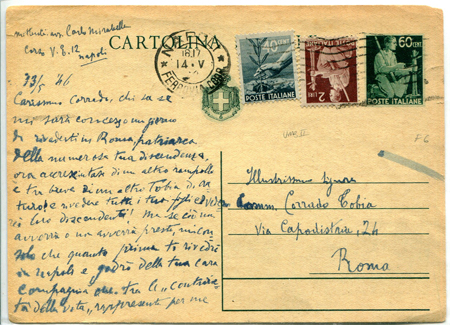 mittente avv. Carlo Mirabella
Corso V. E. 12
Napoli
CARTOLINA
NAPOLI
16.17
14 · V
FERROVIA
40 CENT.
POSTE ITALIANE
2 LIRE
POSTE ITALIANE
60 CENT
POSTE ITALIANE
13/5 46
Carissimo Corrado, chi sa se
mi sarà concesso un giorno
di rivederti in Roma, patriarca
della numerosa tua discendenza,
ora accresciuta di un altro rampollo
e tra breve di un altro Tobia di
e rivedere tutti i tuoi figli e
loro discendenti! Ma se ciò
avverrà o no avverrà presto,
solo che quanto prima to rivedrò
in Napoli e godrò della tua cara
compagnia che, tra le "contrarie-
tà della vita", rappresenta per me
F6
Illustrissimo Signore
Comm. Corrado Tobia
Via Capodistria, 24
Roma